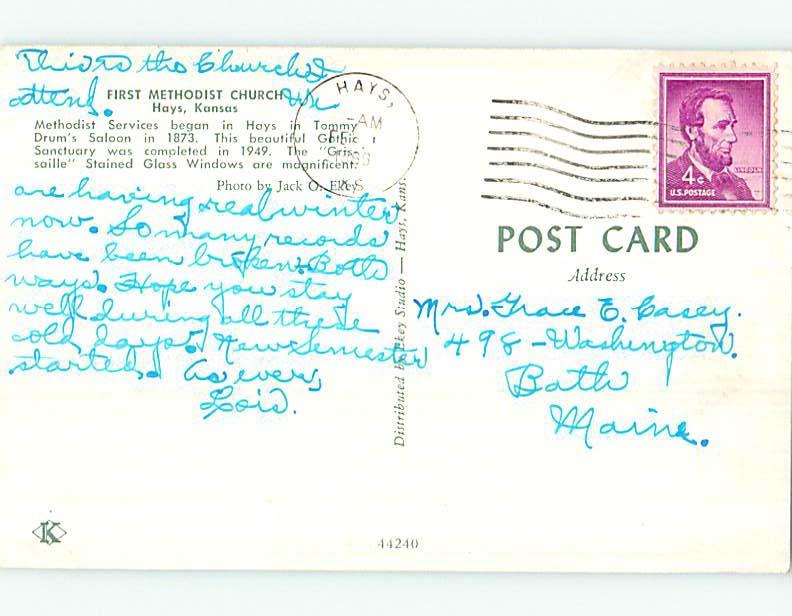 This is the Church I
attend. We
FIRST METHODIST CHURCH
Hays, Kansas
Methodist Services began in Hays in Tommy
Drum's Saloon in 1873. This beautiful Gothic
Sanctuary was completed in 1949. The "Gris-
saille" Stained Glass Windows are magnificent.
Photo by Jack O. Ekey
are having real winter
now. So many records
have been broken. Both
ways. Hope you stay
well during all these
cold days. New Semester
started. As ever,
Lois.
K
HAYS,
-AM
FEB
KS
4¢
LINCOLN
U.S. POSTAGE
POST CARD
Address
Mrs. Grace E. Casey.
498 - Washington.
Bath
Maine.
Distributed by Ekey Studio — Hays, Kans.
44240